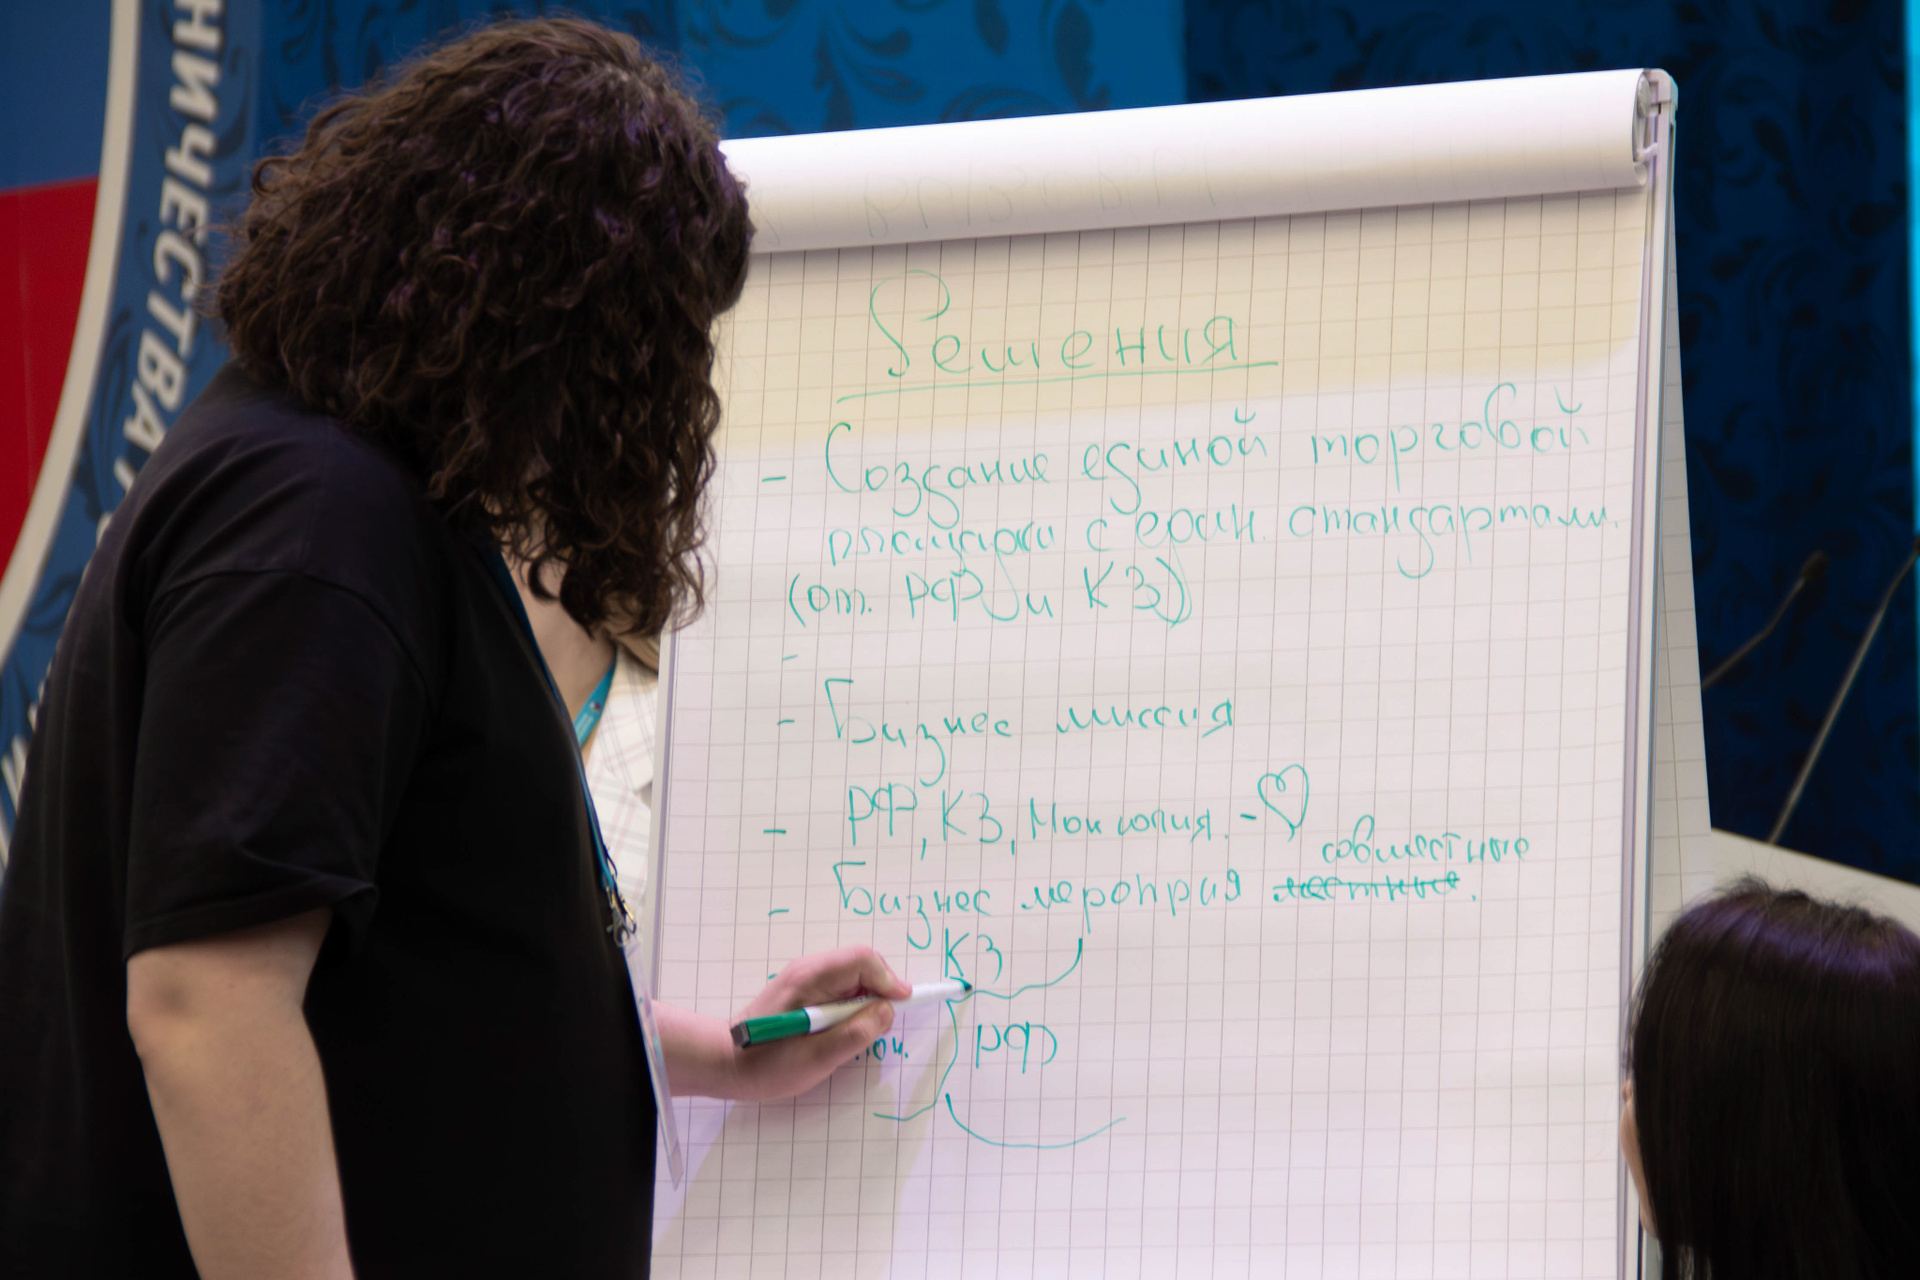 НИЧЕСТВА
Решения
- Создание единой торговой
площадки с един. стандартами.
(от. РФ и КЗ)
-
- Бизнес миссия
- РФ, КЗ, Монголия. - ♡
совместные
- Бизнес мероприя местные.
КЗ
-
РФ